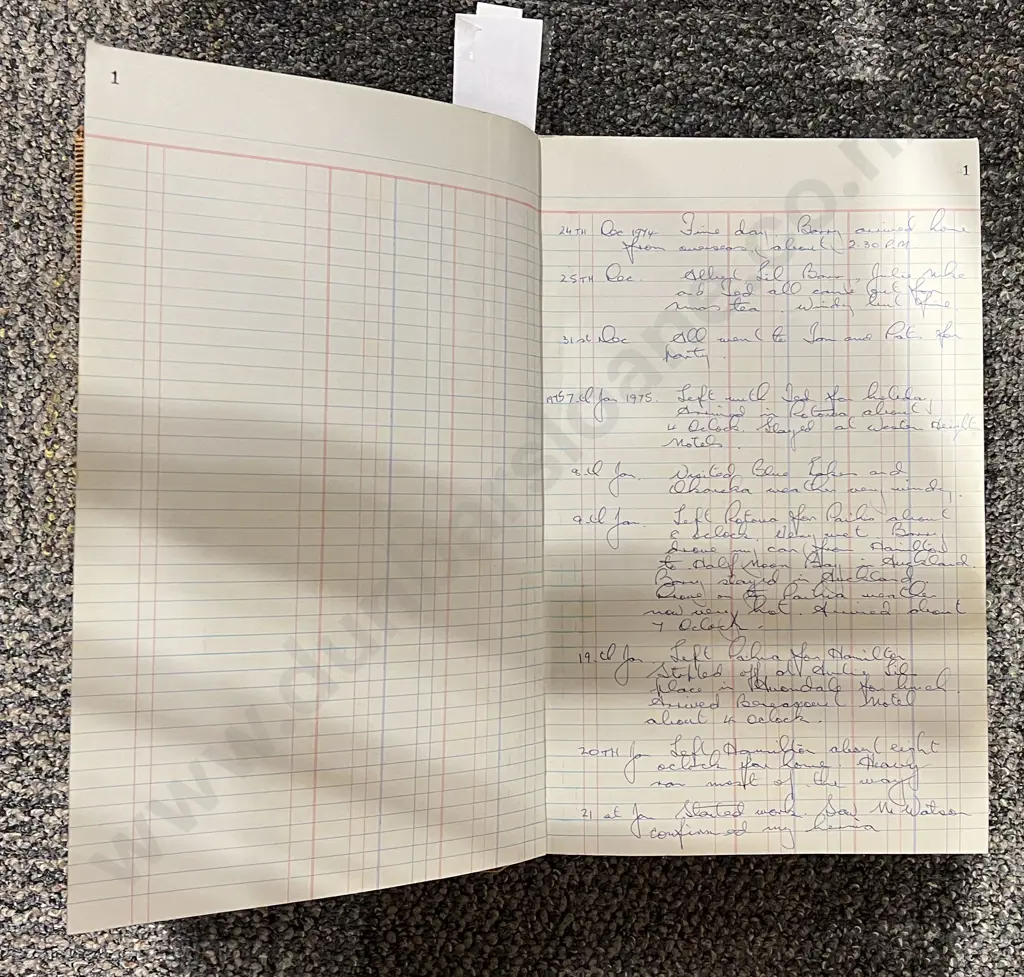 1
1
24TH Dec 1974 Fine day. Barry arrived home
from overseas about 2.30 P.M
25TH Dec. Lil Barry, Julie Mike
and Ted all came out for
xmas tea. Windy but fine.
31st Dec All went to Tom and Pats for
party.
7th Jan 1975. Left with Ted for holiday
Arrived in Rotorua about
4 Oclock. Stayed at Western Heights
Motels.
8th Jan. Visited Blue Lakes and
Okareka weather very windy.
9th Jan. Left Rotorua for Paihia about
8 oclock. Very wet. Barry
drove my car from Hamilton
to Half Moon Bay in Auckland.
Barry stayed in Auckland.
Drove on to Paihia weather
now very hot. Arrived about
7 Oclock.
19th Jan. Left Paihia for Hamilton
Stopped off at
place in Avondale for lunch.
Arrived Motel
about 4 oclock.
20TH Jan Left Hamilton about eight
oclock for home. Heavy
rain most of the way
21st Jan Started work. Saw Mr Watson
confirmed my hernia
www.dunbarsloane.co.nz